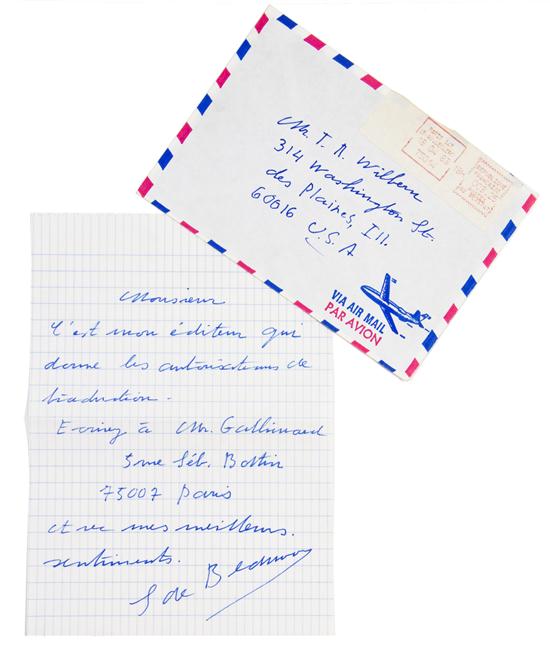 Mr. T. A. Wilbern
314 Washington St.
des Plaines, Ill.
60016
U.S.A
VIA AIR MAIL
PAR AVION
Monsieur
C'est mon éditeur qui
donne les autorisations de
traduction.
Ecrivez à Mr. Gallimard
5 rue Séb. Bottin
75007 Paris
avec mes meilleurs
sentiments.
S de Beauvoir